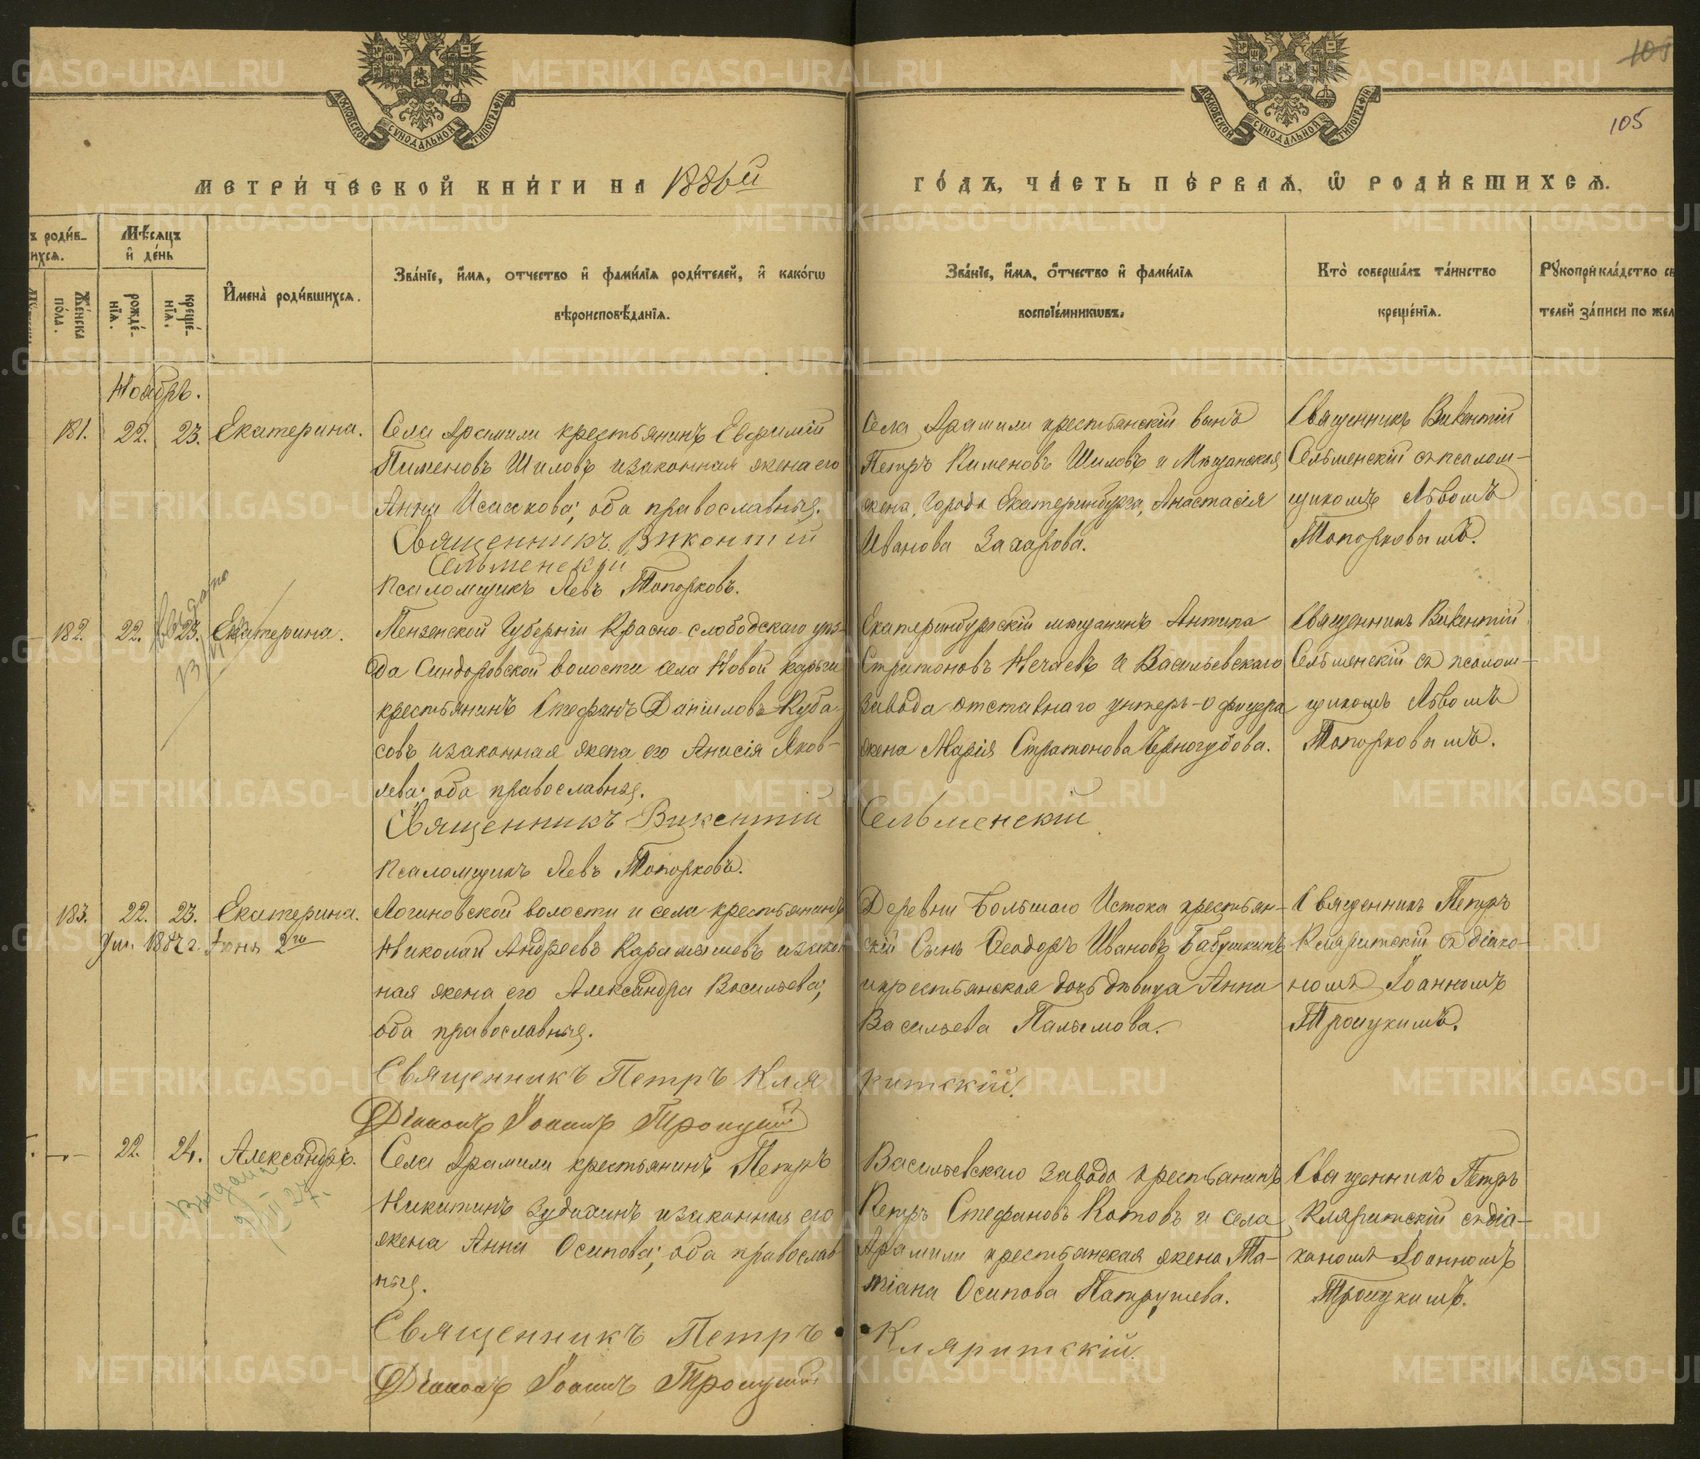 МОСКОВСКОЙ СѴНОДАЛЬНОЙ ТИПОГРАФІИ
МОСКОВСКОЙ СѴНОДАЛЬНОЙ ТИПОГРАФІИ
105
105
МЕТРИЧЕСКОЙ КНИГИ НА 1886й
ГОДЪ, ЧАСТЬ ПЕРВАЯ, Ѡ РОДИВШИХСЯ.
ъ родив-
ихся.
Женска
пола.
Мѣсяцъ
и день
рожде-
нія.
креще-
нія.
Имена родившихся.
Званіе, имя, отчество и фамилія родителей, и какогѡ
вѣроисповѣданія.
Званіе, имя, отчество и фамилія
воспріемниковъ.
Кто совершалъ таинство
крещенія.
Рукоприкладство св
телей записи по жел
Ноябрь.
181. 22. 23. Екатерина.
Села Арамили крестьянинъ Евфимій
Пименовъ Шиловъ и законная жена его
Анна Исаакова; оба православныя.
Священникъ Викентій
Сельменскій
Псаломщикъ Левъ Топорковъ.
Села Арамили крестьянскій сынъ
Петръ Пименовъ Шиловъ и Мѣщанская
жена, города Екатеринбурга, Анастасія
Иванова Захарова.
Священникъ Викентій
Сельменскій съ псалом-
щикомъ Львомъ
Топорковымъ.
182. 22. 23. Екатерина.
Выдано
Пензенской Губерніи Красно-слободскаго уѣз-
да Синдоровской волости села Новой Карьги
крестьянинъ Стефанъ Даніиловъ Куба-
совъ и законная жена его Анисія Яков-
лева; оба православныя.
Священникъ Викентій Сельменскій
Псаломщикъ Левъ Топорковъ.
Екатеринбургскій мѣщанинъ Антипа
Стратоновъ Нечаевъ и Васильевскаго
завода отставнаго унтеръ-офицера
жена Марія Стратонова Черногубова.
Священникъ Викентій
Сельменскій съ псалом-
щикомъ Львомъ
Топорковымъ.
183. 22. 23. Екатерина.
Ум. 1887 г. Іюня 2го
Логиновской волости и села крестьянинъ
Николай Андреевъ Карамышевъ и закон-
ная жена его Александра Васильева;
оба православныя.
Священникъ Петръ Кляритскій.
Діаконъ Іоаннъ Троицкій
Деревни Большаго Истока крестьян-
скій сынъ Ѳеодоръ Ивановъ Бабушкинъ
и крестьянская дочь дѣвица Анна
Васильева Палымова.
Священникъ Петръ
Кляритскій съ діако-
номъ Іоанномъ
Троицкимъ.
22. 24. Александръ.
Выдана
Села Арамили крестьянинъ Петръ
Никитинъ Зудихинъ и законная его
жена Анна Осипова; оба православ-
ныя.
Священникъ Петръ Кляритскій.
Діаконъ Іоаннъ Троицкій
Васильевскаго завода крестьянинъ
Петръ Стефановъ Котовъ и села
Арамили крестьянская жена Та-
тіана Осипова Патрушева.
Священникъ Петръ
Кляритскій съ діа-
кономъ Іоанномъ
Троицкимъ.
METRIKI.GASO-URAL.RU